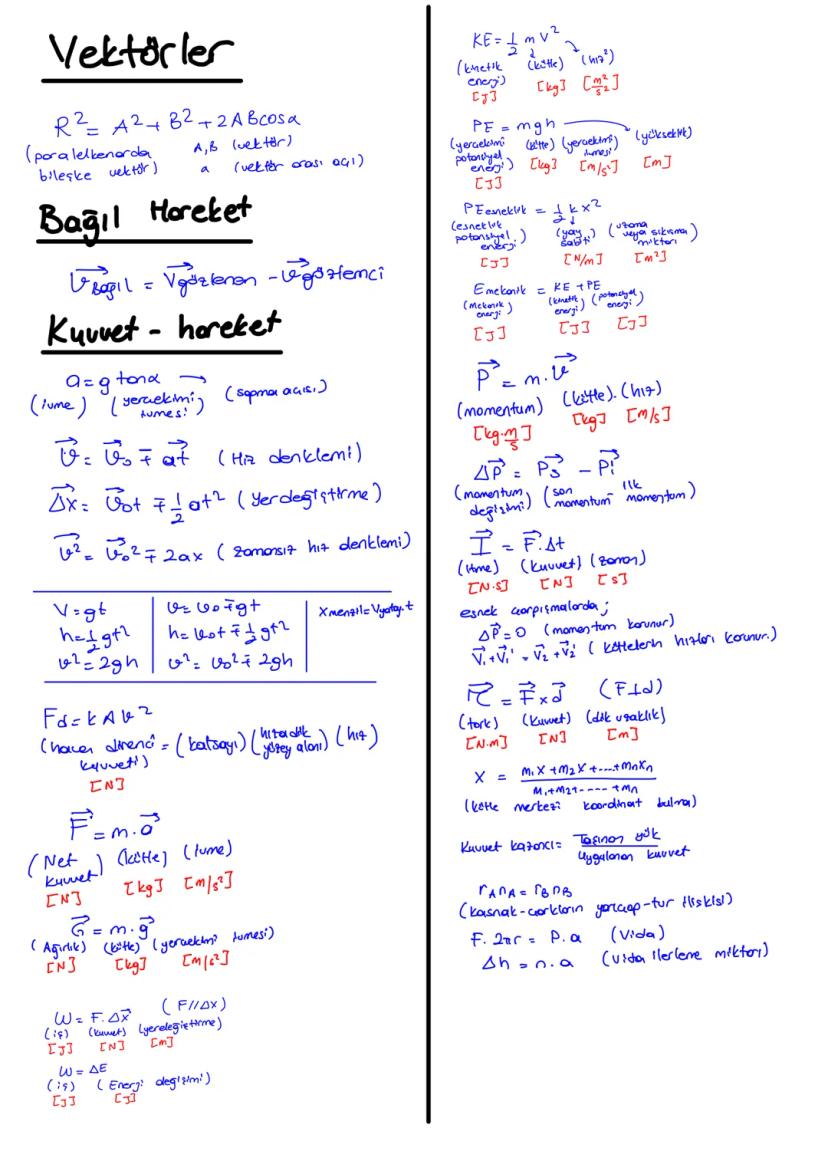 Vektörler
R² = A² + B² + 2ABcosa
(paralelkenarda A,B (vektör)
bileşke vektör) a (vektör arası açı)
Bağıl Hareket
V⃗bağıl = V⃗gözlenen - V⃗gözlemci
Kuvvet - hareket
a = g tanα →
(ivme) (yerçekimi ivmesi) (sapma açısı)
v⃗ = v⃗₀ ∓ a⃗t (Hız denklemi)
Δ⃗x = v⃗₀t ∓ ½at² (Yerdeğiştirme)
v⃗² = v⃗₀² ∓ 2ax (zamansız hız denklemi)
V = gt
h = ½gt²
v² = 2gh
v = v₀ ∓ gt
h = v₀t ∓ ½gt²
v² = v₀² ∓ 2gh
Xmenzil = Vyatay.t
Fd = kAv²
(havan direnci kuvveti) = (katsayı) (hıza dik yüzey alanı) (hız)
[N]
F⃗ = m.a⃗
(Net kuvvet) (kütle) (ivme)
[N] [kg] [m/s²]
G⃗ = m.g⃗
(Ağırlık) (kütle) (yerçekimi ivmesi)
[N] [kg] [m/s²]
W = F.Δx⃗ (F//Δx)
(iş) (kuvvet) (yerdeğiştirme)
[J] [N] [m]
W = ΔE
(iş) (Enerji değişimi)
[J] [J]
KE = ½ m v²
(kinetik enerji) (kütle) (hız²)
[J] [kg] [m²/s²]
PE = mgh
(yerçekimi potansiyel enerji) (kütle) (yerçekimi ivmesi) (yükseklik)
[J] [kg] [m/s²] [m]
PEesneklik = ½ k x²
(esneklik potansiyel enerji) (yay sabiti) (uzama veya sıkışma miktarı)
[J] [N/m] [m²]
Emekanik = KE + PE
(mekanik enerji) (kinetik enerji) (potansiyel enerji)
[J] [J] [J]
P⃗ = m.v⃗
(momentum) (kütle).(hız)
[kg.m/s] [kg] [m/s]
ΔP⃗ = P⃗s - P⃗i
(momentum değişimi) (son momentum - ilk momentum)
I⃗ = F⃗.Δt
(itme) (kuvvet) (zaman)
[N.s] [N] [s]
esnek çarpışmalarda;
ΔP⃗ = 0 (momentum korunur)
V⃗₁+V⃗₁' = V⃗₂+V⃗₂' (kütlelerin hızları korunur.)
τ⃗ = F⃗ x d⃗ (F⊥d)
(tork) (kuvvet) (dik uzaklık)
[N.m] [N] [m]
X = m₁X + m₂X + .... + mnXn / m₁ + m₂ + ----- + mn
(kütle merkezi koordinat bulma)
Kuvvet kazancı = Taşınan yük / Uygulanan kuvvet
rAnA = rBnB
(kasnak-çarkların yarıçap-tur ilişkisi)
F. 2πr = P.a (Vida)
Δh = n.a (vida ilerleme miktarı)